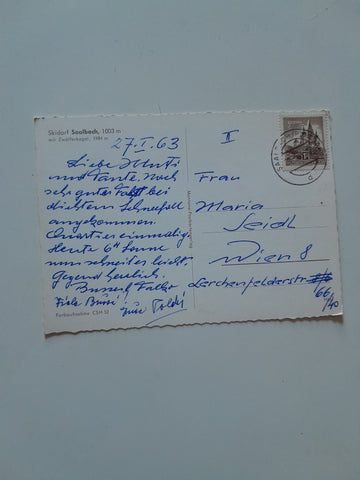 Skidorf Saalbach, 1003 m
mit Zwölferkogel, 1984 m
27.I.63
Liebe Mutti
und Tante. Nach
sehr guter Fahrt bei
dichtem Schneefall
angekommen.
Quartier einmalig.
Heute 6° Sonne
nun schneit es leicht.
Gegend herrlich.
Busserl Falko
Viele Bussi Poldi
Farbaufnahme CSH 52
II
Frau
Maria
Seidl
Wien 8
Lerchenfelderstr
66
/40
SAAL